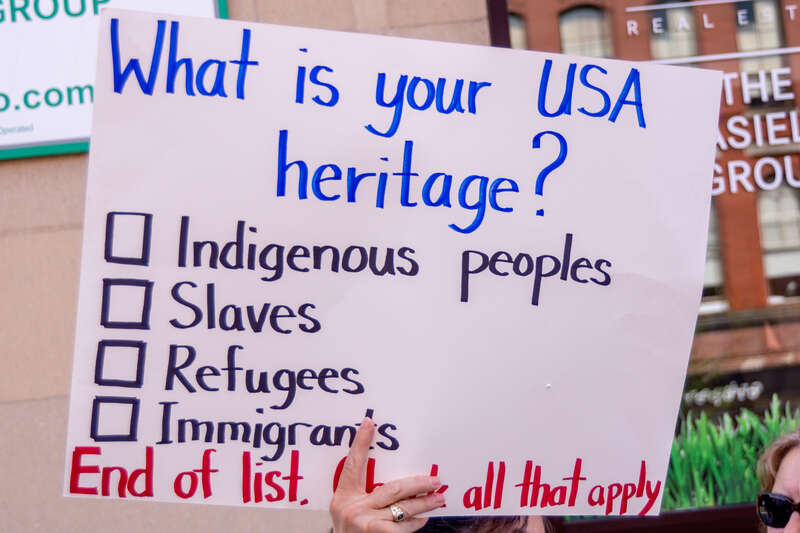 GROUP
o.com
Operated
What is your USA
heritage?
Indigenous peoples
Slaves
Refugees
Immigrants
End of list. all that apply
REAL EST
THE
ASIEL
GROU